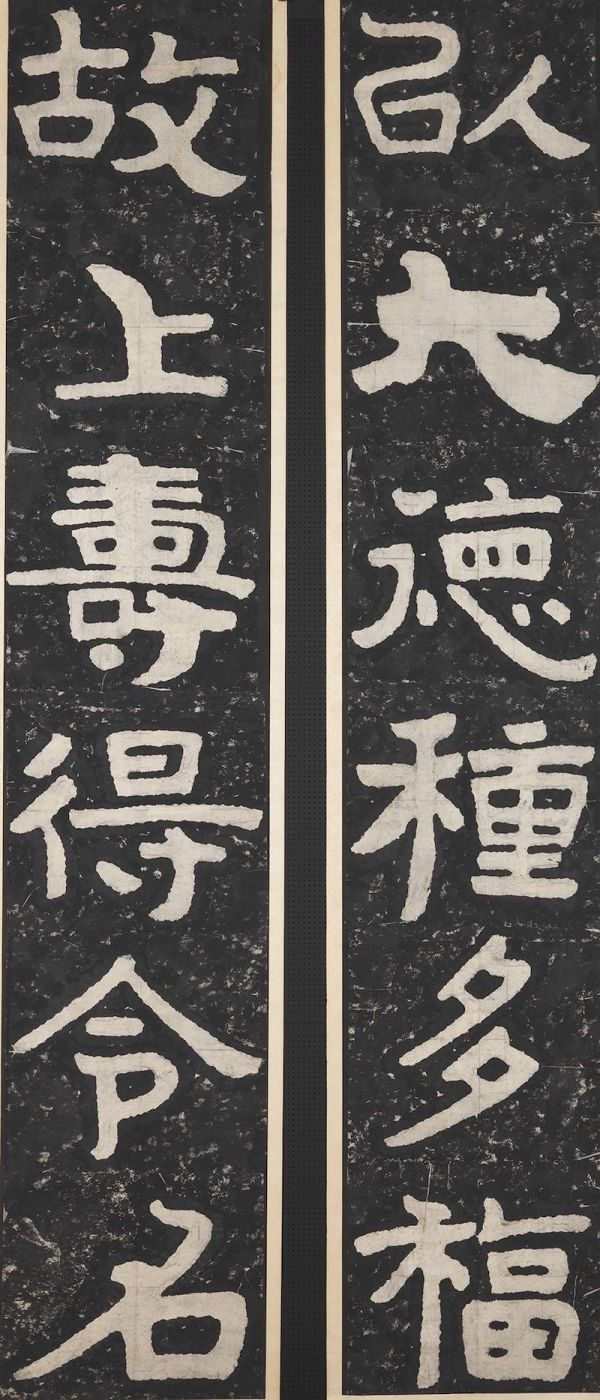 以大德種多福
故上壽得令名